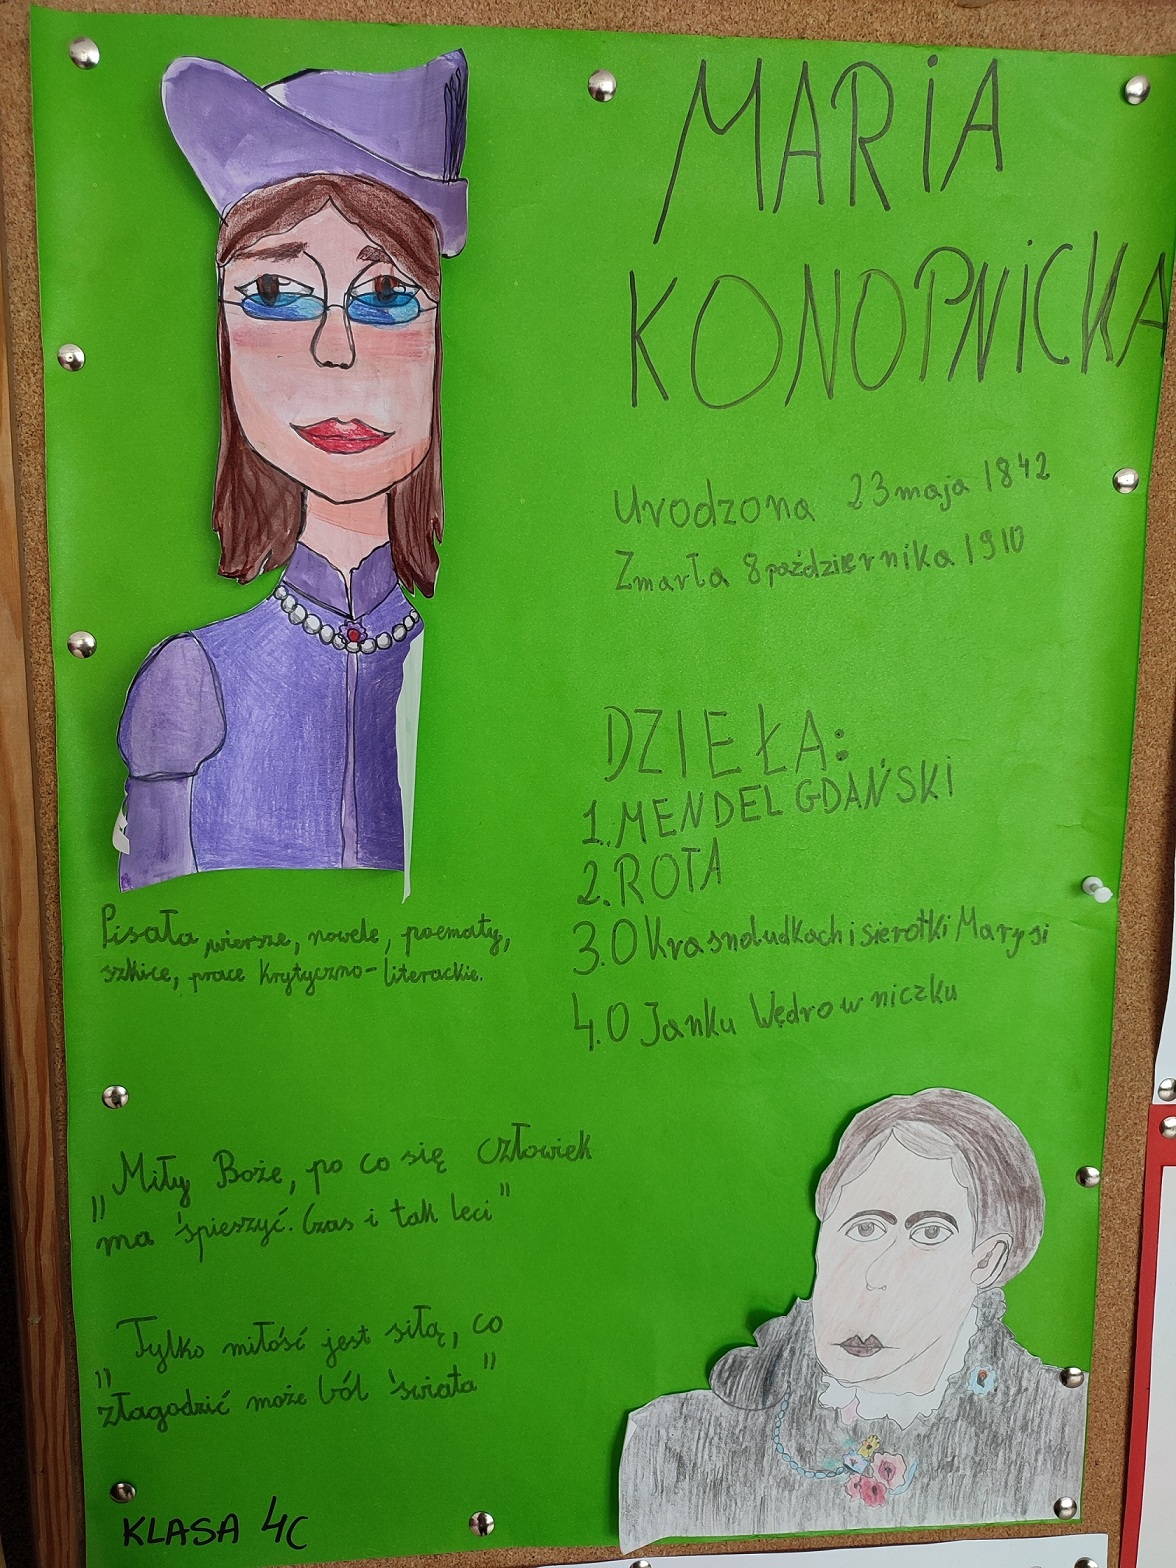 MARiA
KONOPNiCKA
Urodzona 23 maja 1842
Zmarła 8 października 1910
DZIEŁA:
1. MENDEL GDAŃSKI
2. ROTA
3. O Krasnoludkach i sierotki Marysi
4. O Janku Wędrowniczku
Pisała wiersze, nowele, poematy,
szkice, prace krytyczno-literackie.
„Miły Boże, po co się człowiek
ma śpieszyć. Czas i tak leci"
„Tylko miłość jest siłą, co
złagodzić może ból świata"
KLASA 4C